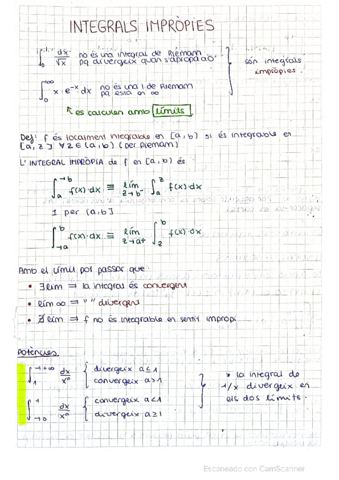 INTEGRALS IMPRÒPIES
∫₀¹ dx/√x no és una integral de Riemann
pq divergeix quan s'apropa a 0
són integrals
impròpies.
∫₀^∞ x·e⁻ˣ dx no és una I de Riemann
pq està en ∞
es calculen amb límits
Def: f és localment integrable en [a,b) si és integrable en
[a,z] ∀z∈(a,b) (per Riemann)
L'INTEGRAL IMPRÒPIA de f en [a,b) és
∫ₐ^→b f(x)·dx ≡ lím z→b⁻ ∫ₐ^z f(x)·dx
I per (a,b]
∫→a^b f(x)·dx ≡ lím z→a⁺ ∫z^b f(x)·dx
Amb el límit pot passar que:
• ∃lím ⇒ la integral és convergent
• lím ∞ ⇒ " " divergent
• ∄ lím ⇒ f no és integrable en sentit impropi
Potències
∫₁^→+∞ dx/xᵃ { divergeix a≤1
convergeix a>1
∫→0^1 dx/xᵃ { convergeix a<1
divergeix a≥1
* la integral de
1/x divergeix en
els dos límits.
Escaneado con CamScanner